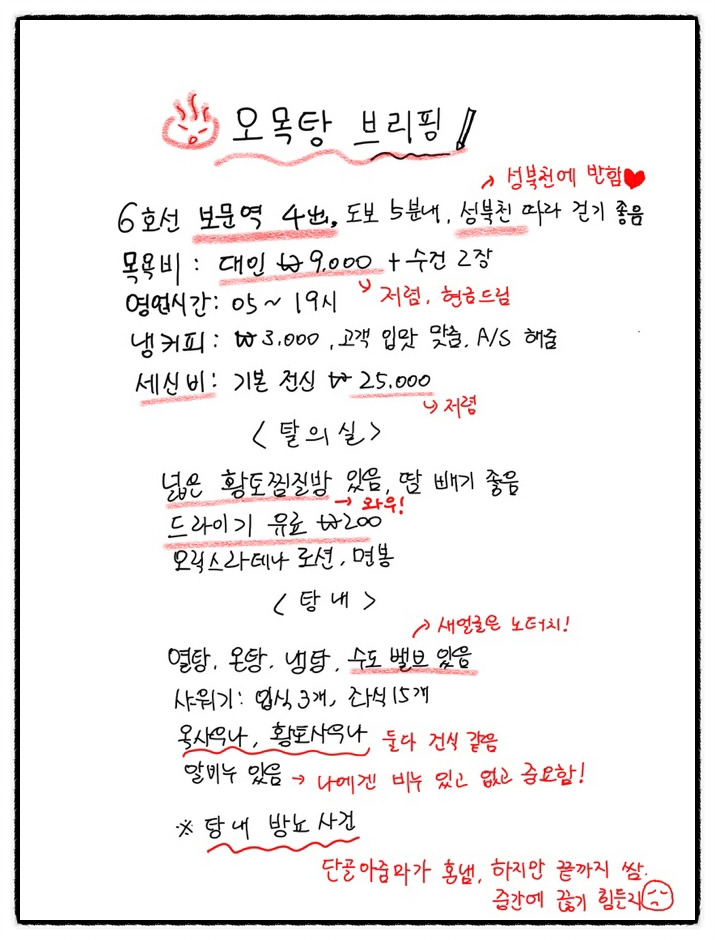 오목탕 브리핑
성북천에 반함
6호선 보문역 4出, 도보 5분내, 성북천 따라 걷기 좋음
목욕비 : 대인 ₩9,000 + 수건 2장
저렴, 현금드림
영업시간: 05 ~ 19시
냉커피: ₩3,000, 고객 입맛 맞춤, A/S 해줌
세신비: 기본 전신 ₩25,000
저렴
<탈의실>
넓은 황토찜질방 있음, 땀 빼기 좋음
와우!
드라이기 유료 ₩200
오릭스라테나 로션, 면봉
<탕내>
새얼굴은 노터치!
열탕, 온탕, 냉탕, 수도 밸브 있음
샤워기: 입식 3개, 좌식 15개
옥사우나, 황토사우나 둘다 건식 같음
알비누 있음 → 나에겐 비누 있고 없고 중요함!
※ 탕내 방뇨 사건
단골아줌마가 혼냄, 하지만 끝까지 쌈.
중간에 끊기 힘든지